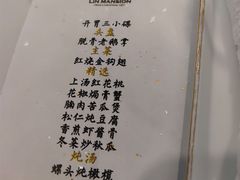 LIN MANSION
开胃三小碟
头盘
脱骨老鹅掌
主菜
红烧金钩翅
精选
上汤红花桃
花椒焗膏蟹
脑肉苦瓜煲
松仁炖豆腐
香煎虾酱骨
冬菜炒秋瓜
炖汤
螺头炖橄榄